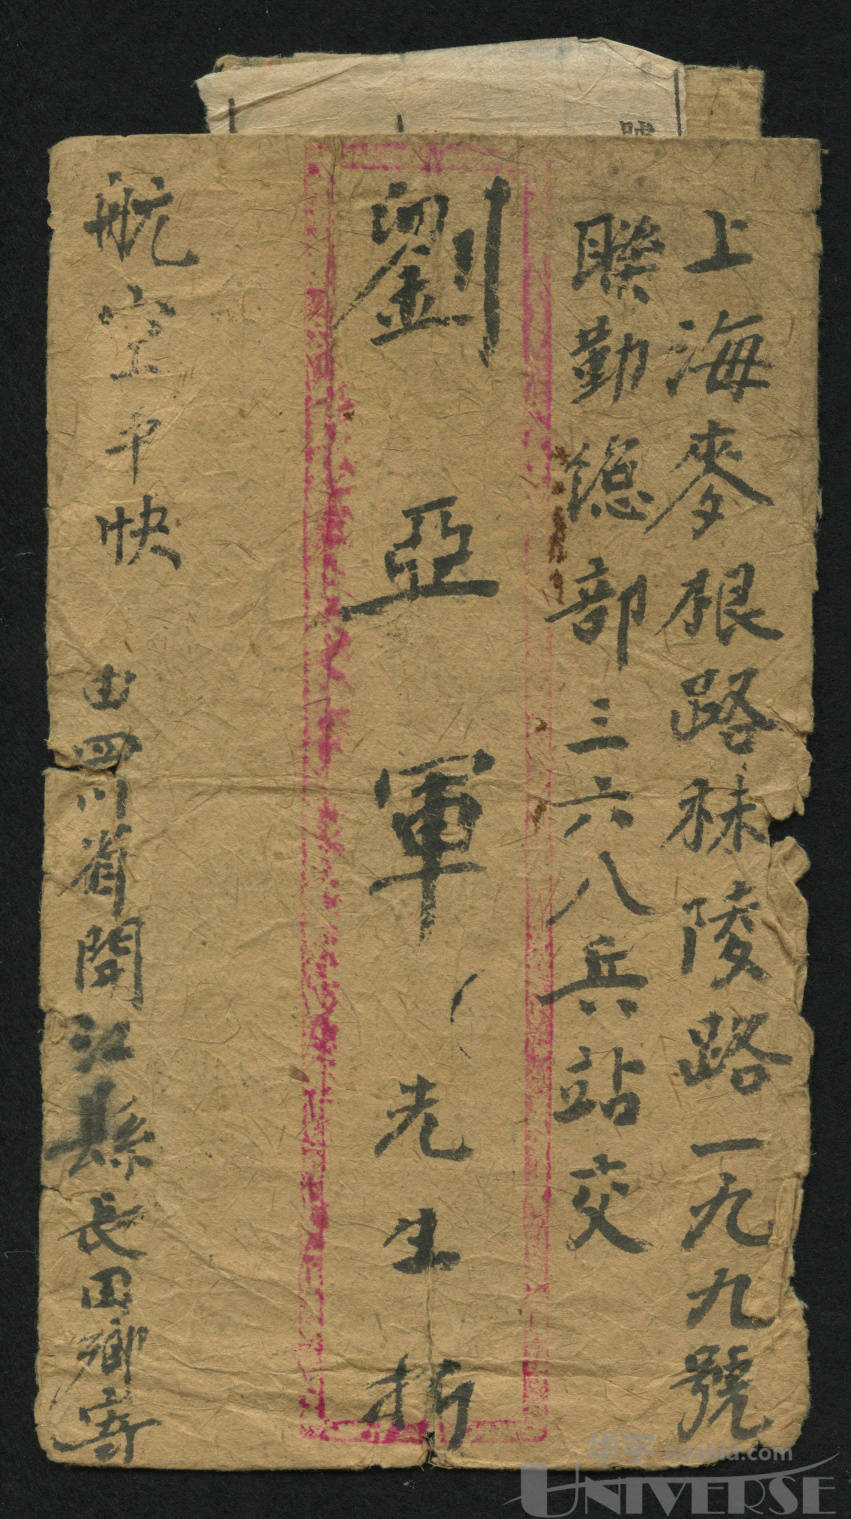 上海麥根路秣陵路一九九號
聯勤總部三六八兵站交
劉亞軍先生折
航空平快
由四川省開江縣長田鄉寄
华宇 huabid.com
UNIVERSE